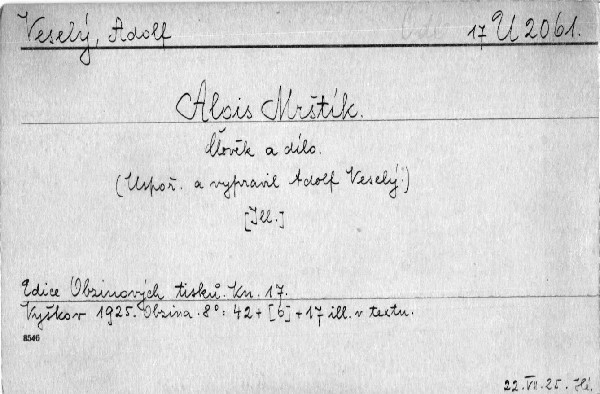 Veselý, Adolf 17 U 2061.
Alois Mrštík.
Člověk a dílo.
(Uspoř. a vypravil Adolf Veselý.)
[Ill.]
Edice Obzinových tisků. Kn. 17.
Vyškov 1925. Obzina. 8°: 42 + [6] + 17 ill. v textu.
8546
22. VII. 25. Hé.